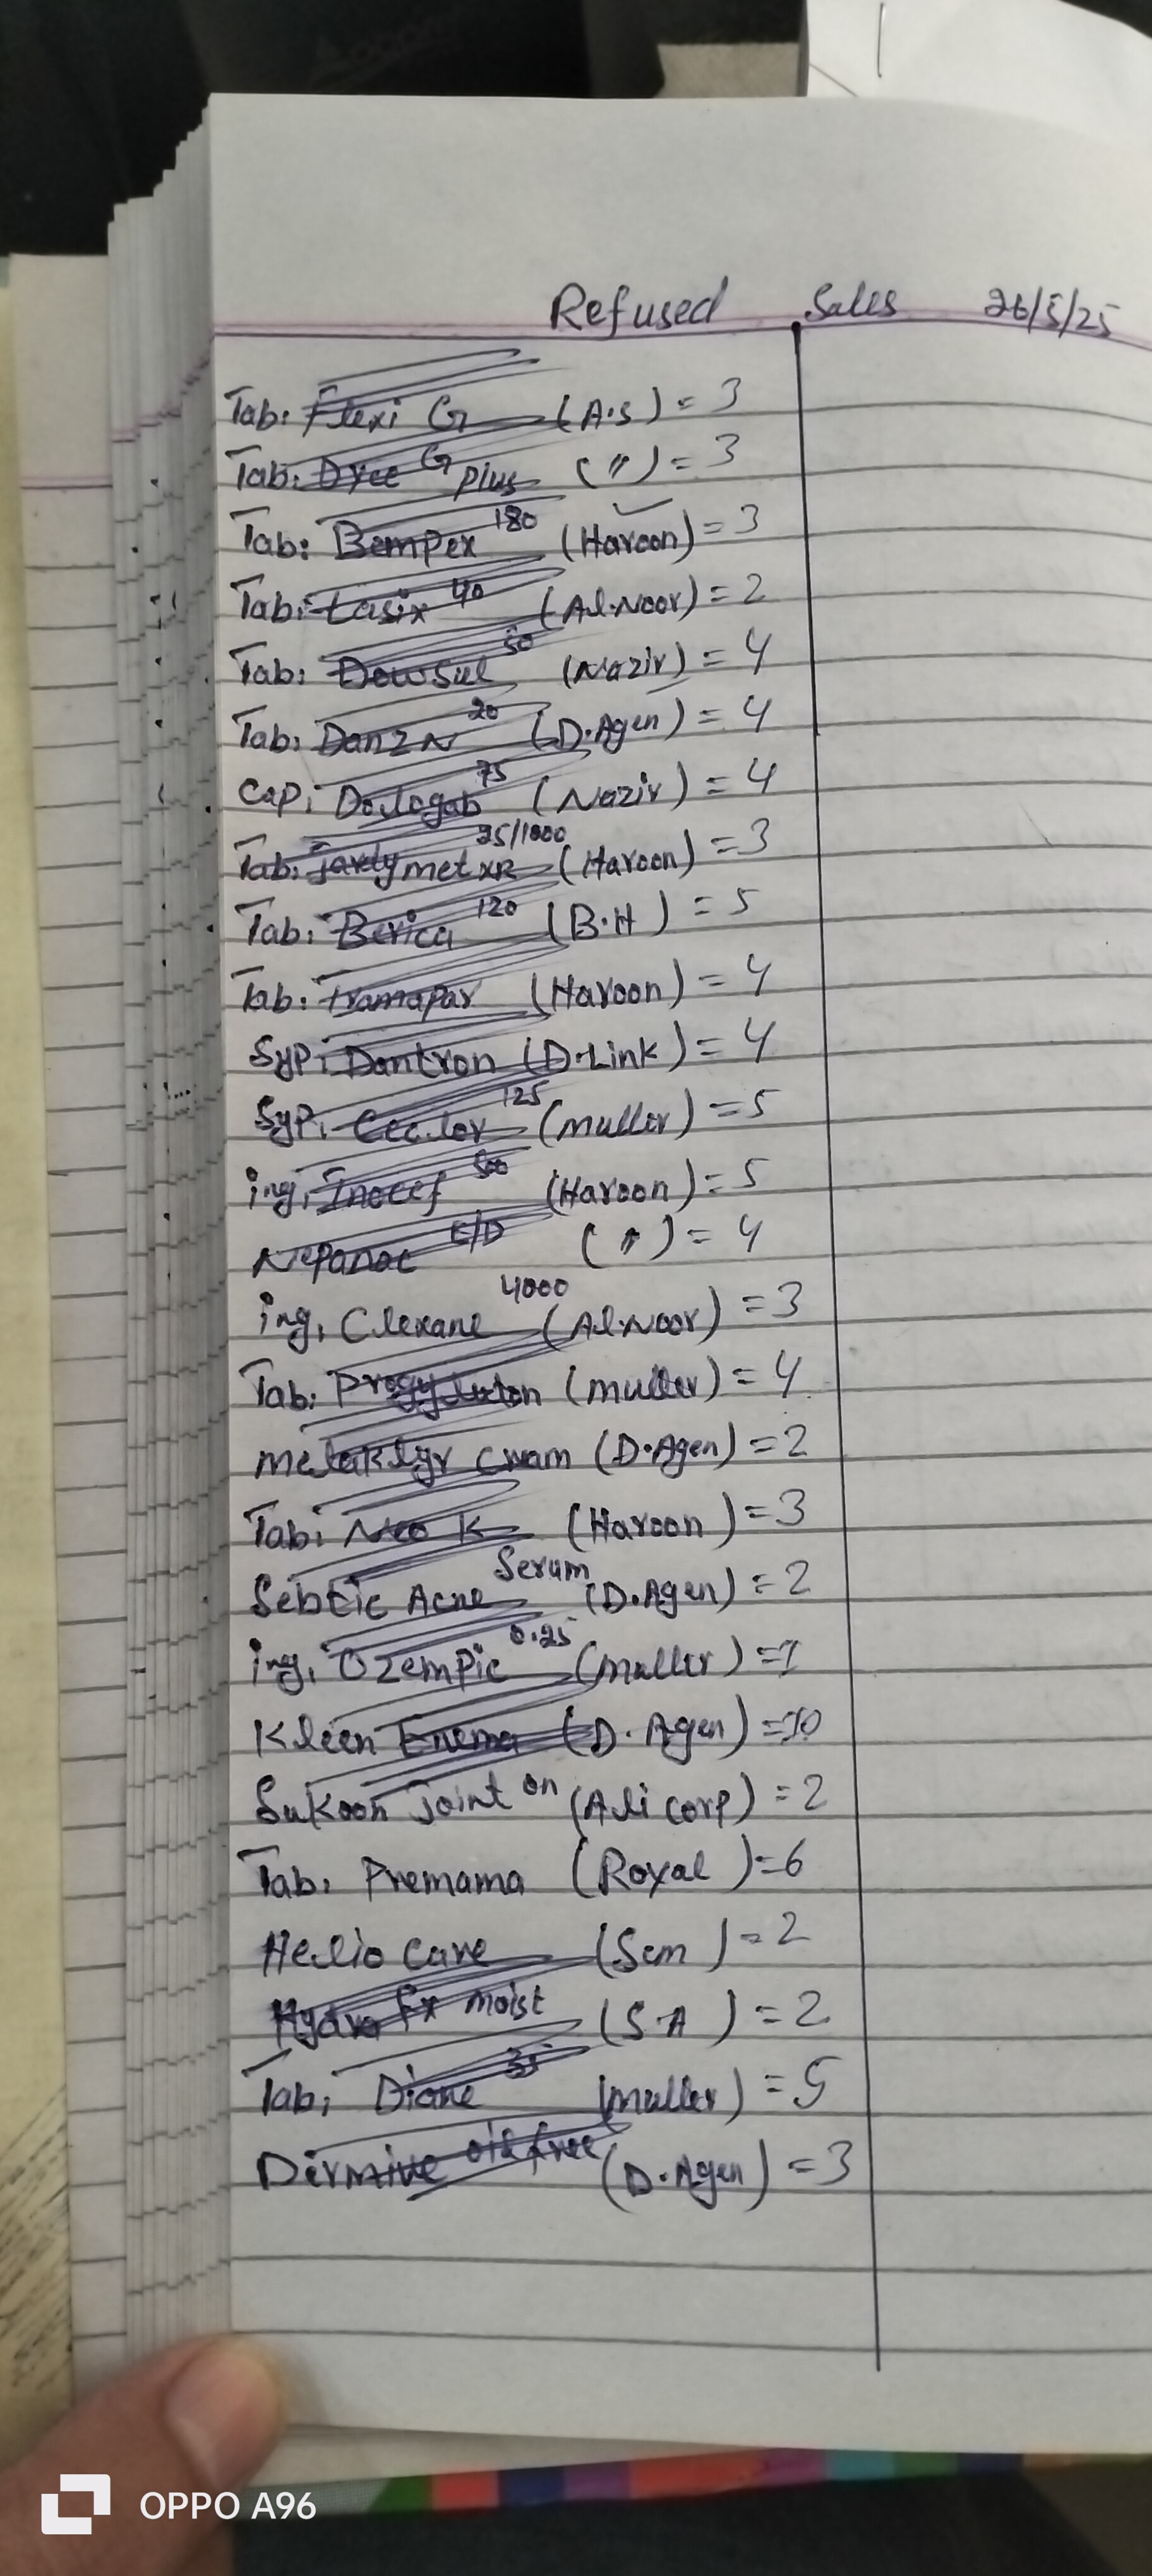 Refused Sales 26/5/25
Tab: Flexi G (A.S) = 3
Tab: Dyce G Plus (〃) = 3
Tab: Bempex 180 (Haroon) = 3
Tab: Lasix 40 (Al.Noor) = 2
Tab: Dowsul 50 (Nazir) = 4
Tab: Danzn 20 (D.Agen) = 4
Cap: Dologab 75 (Nazir) = 4
Tab: Jardymet XR 25/1000 (Haroon) = 3
Tab: Berica 120 (B.H) = 5
Tab: Tramapar (Haroon) = 4
Syp: Dontron (D.Link) = 4
Syp: Cec.lor 125 (muller) = 5
inj, Inocef 500 (Haroon) = 5
Nepanac E/D (〃) = 4
inj, Clexane 4000 (Al.Noor) = 3
Tab: Progyluton (muller) = 4
melaklyr cream (D.Agen) = 2
Tab: Neo K (Haroon) = 3
Sebtic Acne Serum (D.Agen) = 2
inj, Ozempic 0.25 (muller) = 1
Kleen Enema (D.Agen) = 10
Sukoon Joint on (Ali corp) = 2
Tab: Premama (Royal) = 6
Helio Care (Scm) = 2
Hydro fx moist (S.A) = 2
Tab: Diane 35 (muller) = 5
Dermive oil free (D.Agen) = 3
OPPO A96